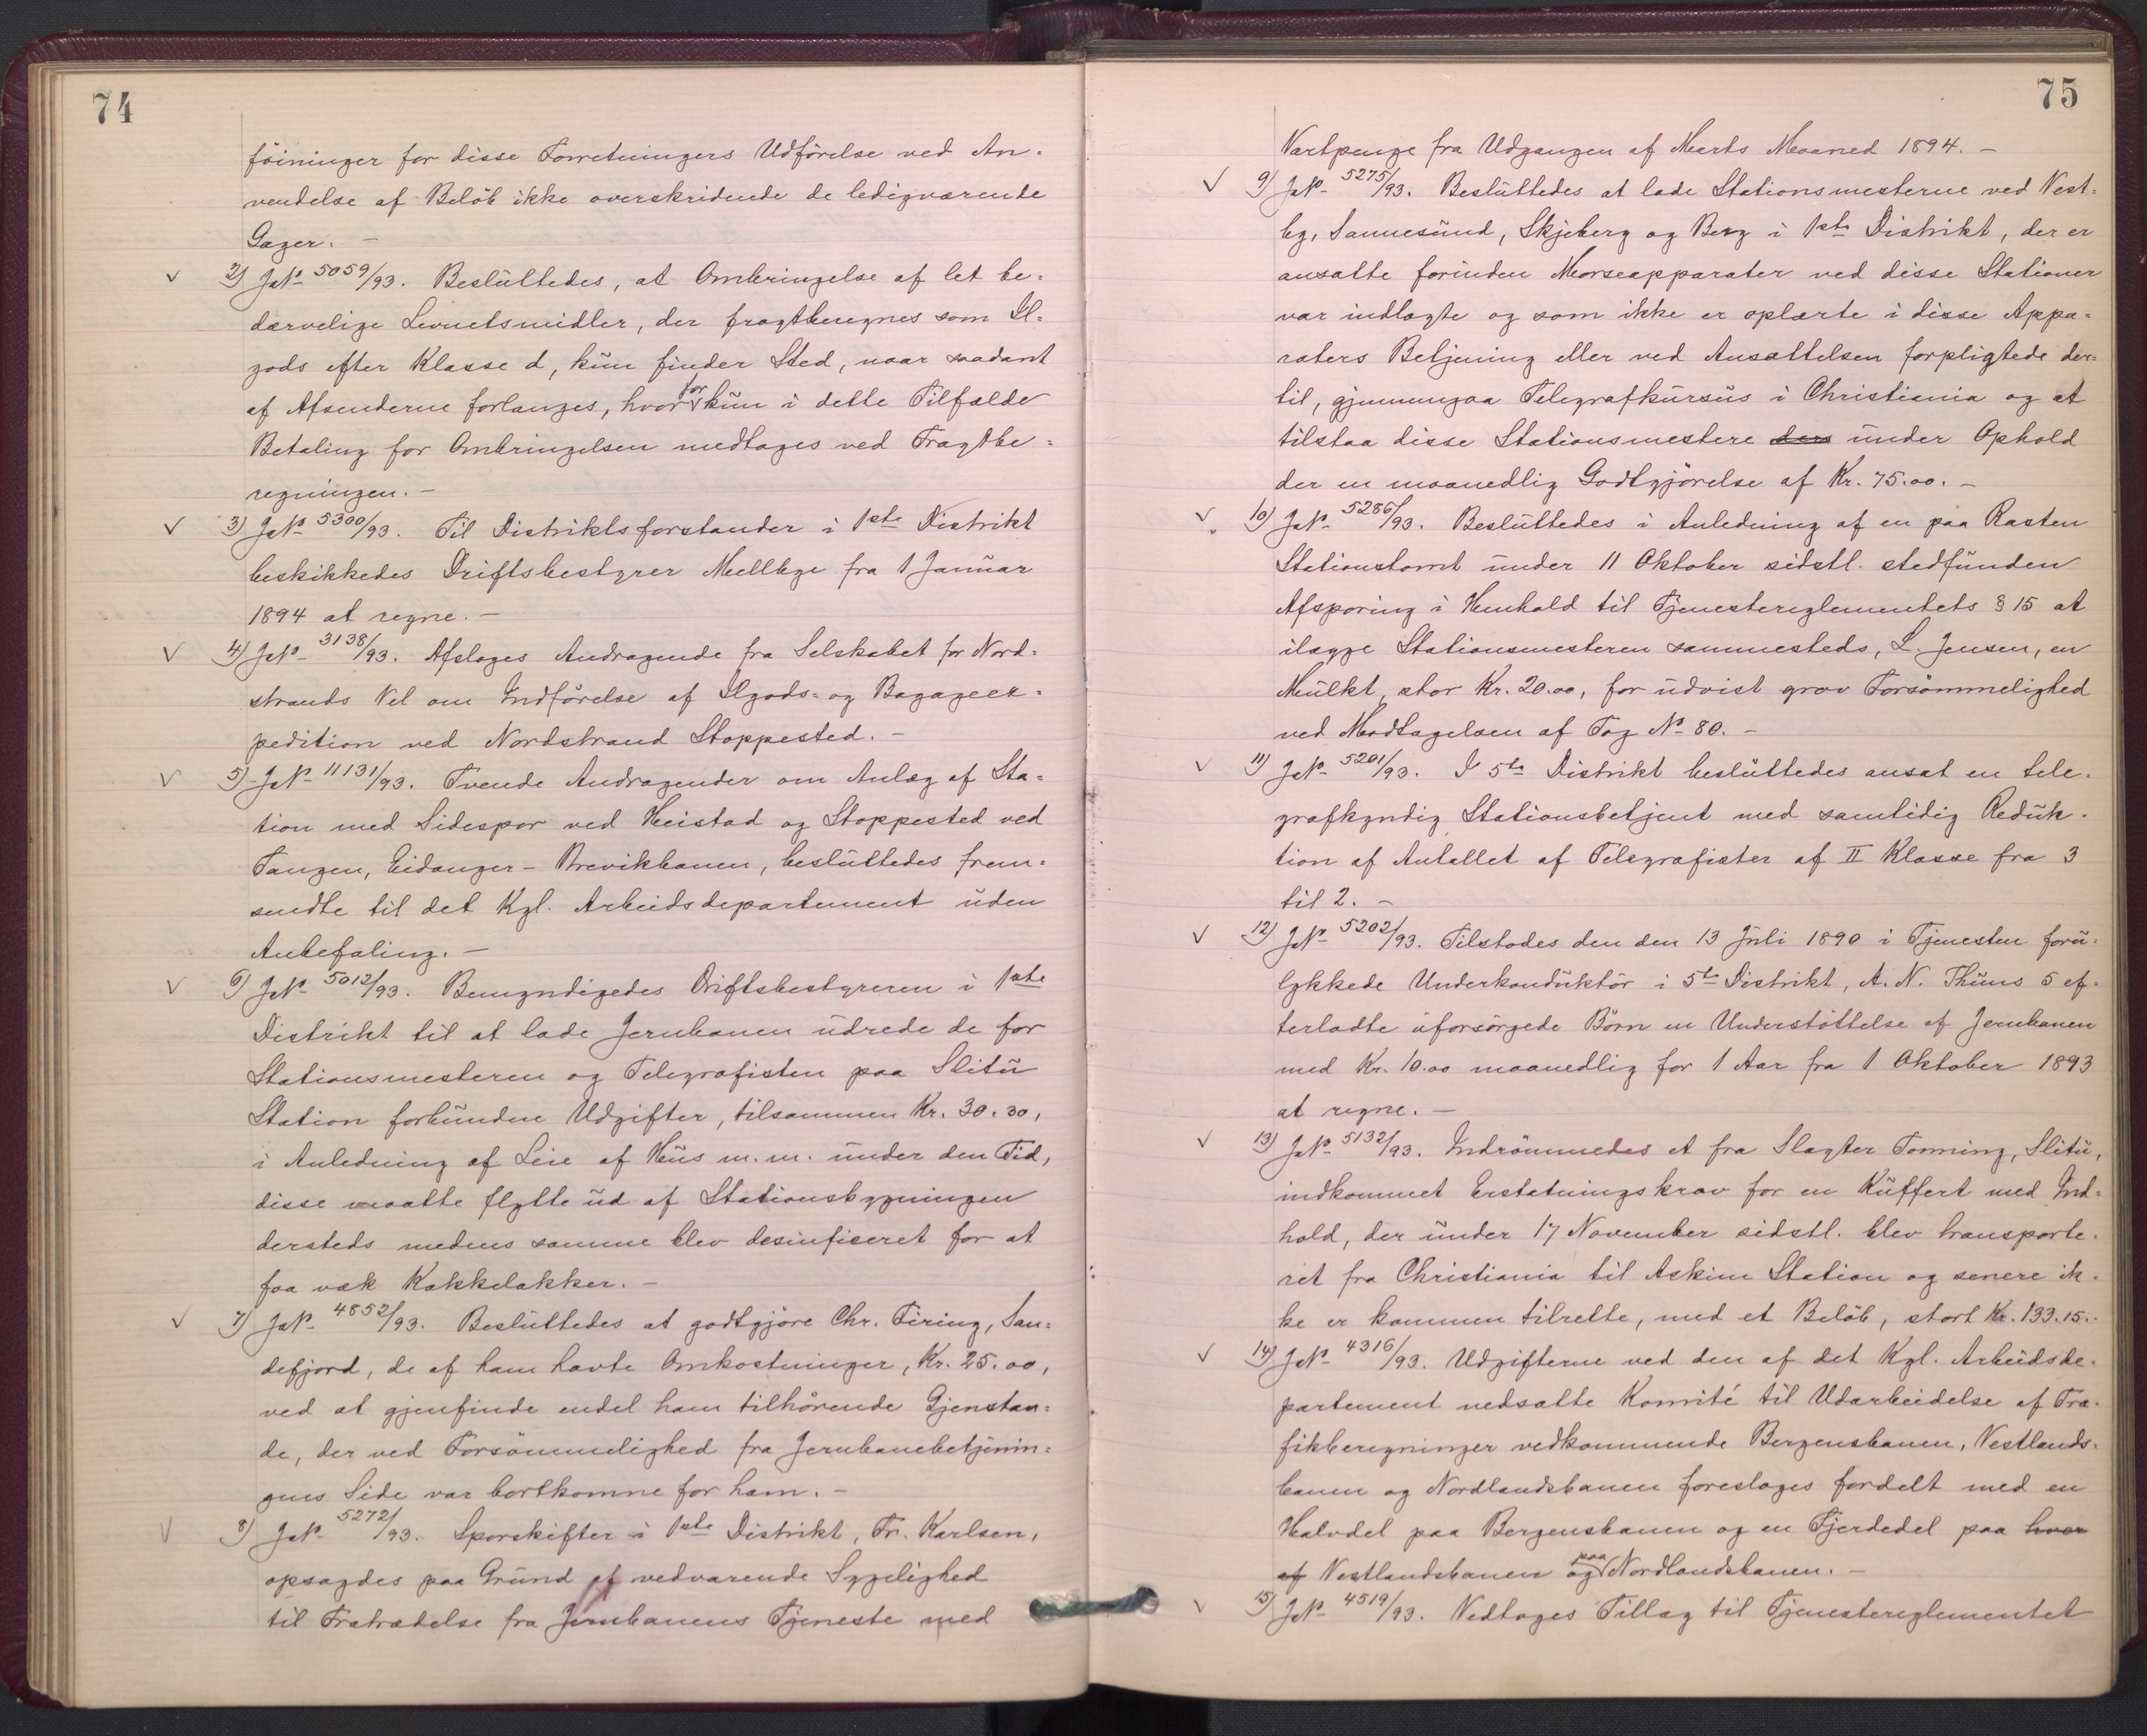 74
föininger for disse Forretningers Udförelse ved An-
vendelse af Belöb ikke overskridende de ledigværende
Gager. —
2) JN° 5059/93. Besluttedes, at Ombringelse af let be-
dærvelige Levnetsmidler, der fragtberegnes som Il-
gods efter Klasse d, kun finder Sted, naar saadant
af Afsenderne forlanges, hvorfor kun i dette Tilfælde
Betaling for Ombringelsen medtages ved Fragtbe-
regningen. —
3) JN° 5300/93. Til Distriktsforstander i 1ste Distrikt
beskikkedes Driftsbestyrer Mellbye fra 1 Januar
1894 at regne. —
4) JN° 3138/93. Afsloges Andragende fra Selskabet for Nord-
strands Vel om Indförelse af Ilgods- og Bagageex-
pedition ved Nordstrand Stoppested. —
5) JN° 11131/93. Tvende Andragender om Anlæg af Sta-
tion med Sidespor ved Heistad og Stoppested ved
Tangen, Eidanger - Brevikbanen, besluttedes frem-
sendte til det Kgl. Arbeidsdepartement uden
Anbefaling. —
6) JN° 5012/93. Bemyndigedes Driftsbestyreren i 1ste
Distrikt til at lade Jernbanen udrede de for
Stationsmesteren og Telegrafisten paa Slitu
Station forbundne Udgifter, tilsammen Kr. 30.30,
i Anledning af Leie af Hus m.m. under den Tid,
disse maatte flytte ud af Stationsbygningen
dersteds medens samme blev desinficeret for at
faa væk Kakkelakker. —
7) JN° 4852/93. Besluttedes at godtgjöre Chr. Firing, San-
defjord, de af ham havte Omkostninger, Kr. 25.00,
ved at gjenfinde endel ham tilhörende Gjenstan-
de, der ved Forsömmelighed fra Jernbanebetjenin-
gens Side var bortkomne for ham. —
8) JN° 5272/93. Sporskifter i 1ste Distrikt, Fr. Karlsen,
opsagdes paa Grund af vedvarende Sygelighed
til Fratrædelse fra Jernbanens Tjeneste med
75
Vartpenge fra Udgangen af Marts Maaned 1894. —
9) JN° 5275/93. Besluttedes at lade Stationsmesterne ved Vest-
by, Sannesund, Skjeberg og Berg i 1ste Distrikt, der er
ansatte forinden Morseapparater ved disse Stationer
var indlagte og som ikke er oplærte i disse Appa-
raters Betjening eller ved Ansættelsen forpligtede der-
til, gjennemgaa Telegrafkursus i Christiania og at
tilstaa disse Stationsmestere ders under Ophold
der en maanedlig Godtgjörelse af Kr. 75.00. —
10) JN° 5286/93. Besluttedes i Anledning af en paa Rasten
Stationstomt under 11 Oktober sidstl. stedfunden
Afsporing i Henhold til Tjenestereglementets § 15 at
ilægge Stationsmesteren sammesteds, L. Jensen, en
Mulkt, stor Kr. 20.00, for udvist grov Forsömmelighed
ved Modtagelsen af Tog N° 80. —
11) JN° 5201/93. I 5te Distrikt besluttedes ansat en tele-
grafkyndig Stationsbetjent med samtidig Reduk-
tion af Antallet af Telegrafister af II Klasse fra 3
til 2. —
12) JN° 5202/93. Tilstodes den den 13 Juli 1890 i Tjenesten foru-
lykkede Underkonduktör i 5te Distrikt, A. N. Thuns 5 ef-
terladte uforsörgede Börn en Understöttelse af Jernbanen
med Kr. 10.00 maanedlig for 1 Aar fra 1 Oktober 1893
at regne. —
13) JN° 5132/93. Indrömmedes et fra Slagter Tonning, Slitu,
indkommet Erstatningskrav for en Kuffert med Ind-
hold, der under 17 November sidstl. blev transporte-
ret fra Christiania til Askim Station og senere ik-
ke er kommen tilrette, med et Belöb, stort Kr. 133.15.
14) JN° 4316/93. Udgifterne ved den af det Kgl. Arbeidsde-
partement nedsatte Komité til Udarbeidelse af Tra-
fikberegninger vedkommende Bergensbanen, Vestlands-
banen og Nordlandsbanen foresloges fordelt med en
Halvdel paa Bergensbanen og en Fjerdedel paa hver
af Vestlandsbanen og paa Nordlandsbanen. —
15) JN° 4519/93. Vedtoges Tillæg til Tjenestereglementet